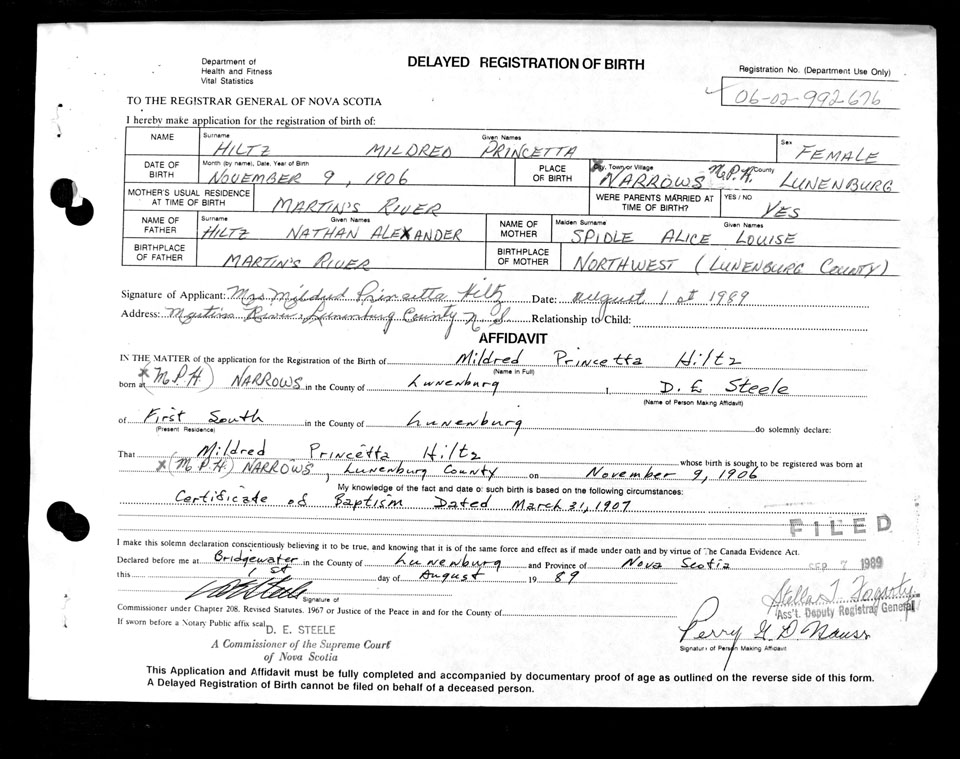 Department of
Health and Fitness
Vital Statistics
DELAYED REGISTRATION OF BIRTH
Registration No. (Department Use Only)
06-02-992-676
TO THE REGISTRAR GENERAL OF NOVA SCOTIA
I hereby make application for the registration of birth of:
NAME Surname HILTZ Given Names MILDRED PRINCETTA Sex FEMALE
DATE OF BIRTH Month (by name), Date, Year of Birth NOVEMBER 9, 1906 PLACE OF BIRTH Town or Village NARROWS M.P.H. County LUNENBURG
MOTHER'S USUAL RESIDENCE AT TIME OF BIRTH MARTIN'S RIVER WERE PARENTS MARRIED AT TIME OF BIRTH? YES / NO YES
NAME OF FATHER Surname HILTZ Given Names NATHAN ALEXANDER NAME OF MOTHER Maiden Surname SPIDLE Given Names ALICE LOUISE
BIRTHPLACE OF FATHER MARTIN'S RIVER BIRTHPLACE OF MOTHER NORTHWEST (LUNENBURG COUNTY)
Signature of Applicant: Mrs Mildred Princetta Hiltz Date: August 1st 1989
Address: Martins River, Lunenburg County N.S Relationship to Child:
AFFIDAVIT
IN THE MATTER of the application for the Registration of the Birth of Mildred Princetta Hiltz
(Name in Full)
born at x (M.P.H) NARROWS in the County of Lunenburg I, D. E Steele
(Name of Person Making Affidavit)
of First South in the County of Lunenburg do solemnly declare:
(Present Residence)
That Mildred Princetta Hiltz whose birth is sought to be registered was born at
x (M.P.H) NARROWS, Lunenburg County on November 9, 1906
My knowledge of the fact and date of such birth is based on the following circumstances:
Certificate of Baptism Dated March 31, 1907
FILED
I make this solemn declaration conscientiously believing it to be true, and knowing that it is of the same force and effect as if made under oath and by virtue of The Canada Evidence Act.
Declared before me at Bridgewater in the County of Lunenburg and Province of Nova Scotia
SEP 7 1989
this 1st day of August 19 89
DE Steele
Signature of
Stella T. Fogarty
Ass't. Deputy Registrar General
Commissioner under Chapter 208, Revised Statutes, 1967 or Justice of the Peace in and for the County of
If sworn before a Notary Public affix seal
D. E. STEELE
A Commissioner of the Supreme Court
of Nova Scotia
Perry G D Nauss
Signature of Person Making Affidavit
This Application and Affidavit must be fully completed and accompanied by documentary proof of age as outlined on the reverse side of this form.
A Delayed Registration of Birth cannot be filed on behalf of a deceased person.